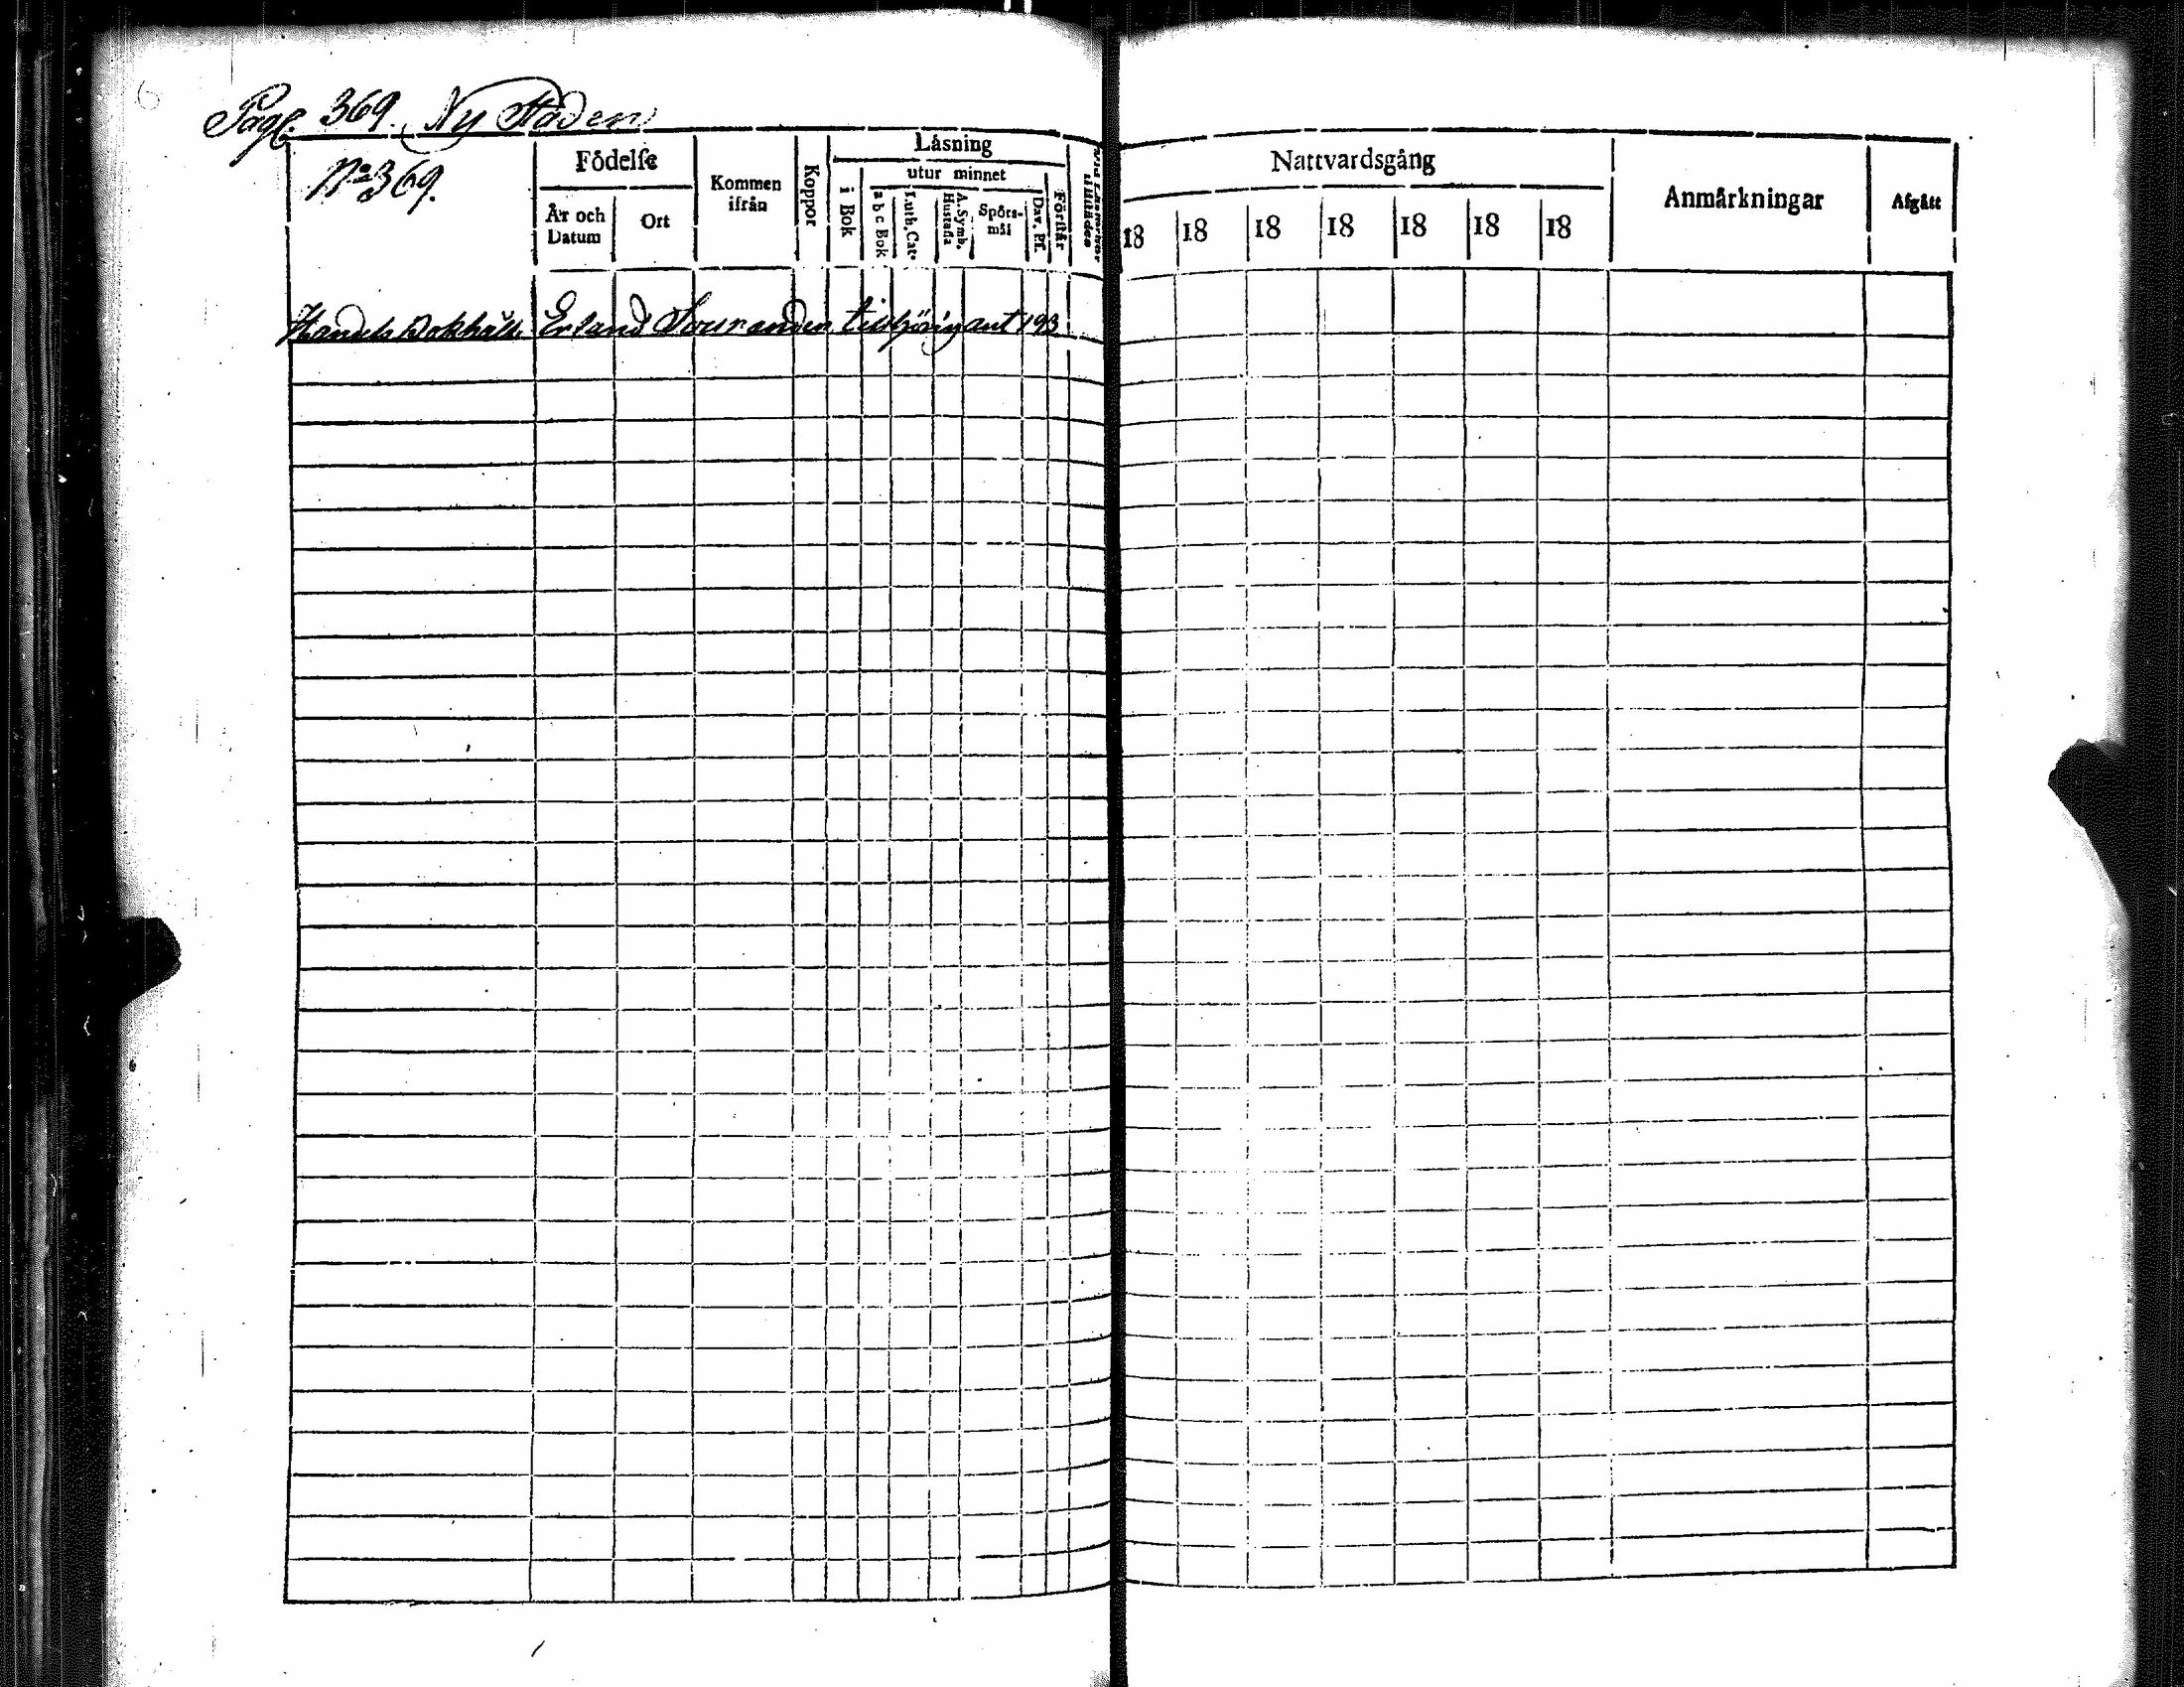 Pag. 369. Ny Staden
No 369.
Födelse
År och Datum
Ort
Kommen ifrån
Koppor
Läsning
i Bok
utur minnet
a b c Bok
Luth. Cat.
A. Symb. Hustafla
Spörsmål
Dav. Ps.
Förstår
Nattvardsgång
18 18 18 18 18 18 18
Anmärkningar
Afgått
Handels Bokhåll. Erland tillhörig ant 193